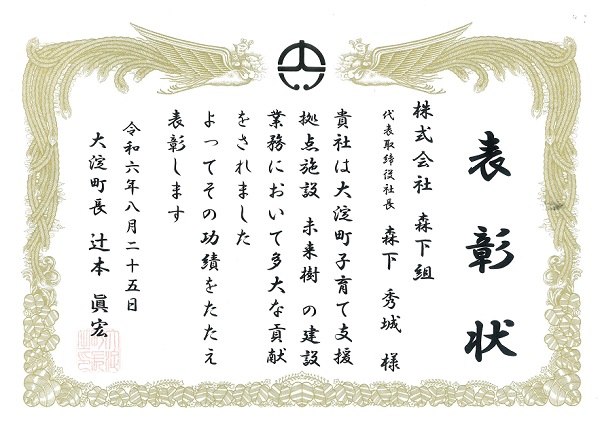 表彰状
株式会社 森下組
代表取締役社長 森下 秀城 様
貴社は大淀町子育て支援
拠点施設 未来樹 の建設
業務において多大な貢献
をされました
よってその功績をたたえ
表彰します
令和六年八月二十五日
大淀町長 辻本 眞宏